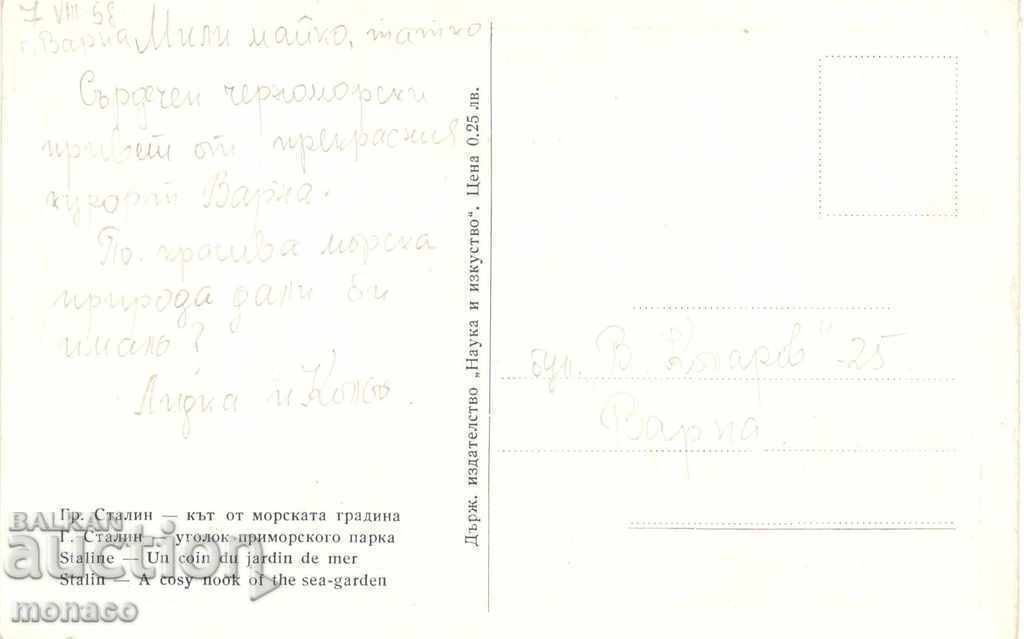 7 VIII 58
г. Варна Мили майко, татко
Сърдечен черноморски
привет от прекрасния
курорт Варна.
По-красива морска
природа дали би
имало?
Лидка и
Гр. Сталин — кът от морската градина
Г. Сталин — уголок приморского парка
Staline — Un coin du jardin de mer
Stalin — A cosy nook of the sea-garden
Държ. издателство „Наука и изкуство“. Цена 0.25 лв.
бул. „В. Коларов" -25
Варна
BALKAN
auction
monaco